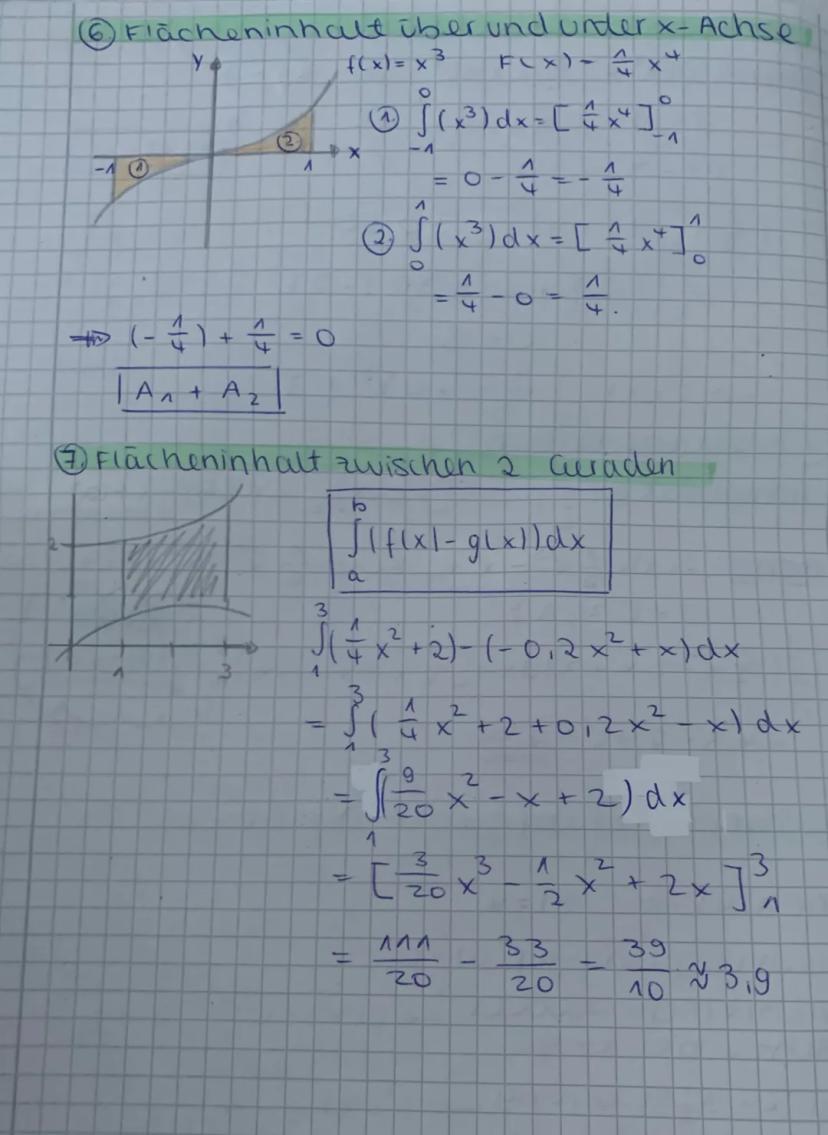 ⑥ Flächeninhalt über und under x-Achse
y f(x) = x³ F(x) = 1/4 x⁴
① ∫₋₁⁰ (x³) dx = [1/4 x⁴]₋₁⁰
-1 ① ② 1 x
= 0 - 1/4 = - 1/4
② ∫₀¹ (x³) dx = [1/4 x⁴]₀¹
= 1/4 - 0 = 1/4.
⇒ (- 1/4) + 1/4 = 0
|A₁ + A₂|
⑦ Flächeninhalt zwischen 2 Geraden
∫ₐᵇ (f(x) - g(x)) dx
2
1 3
∫₁³ (1/4 x² + 2) - (-0,2x² + x) dx
= ∫₁³ (1/4 x² + 2 + 0,2x² - x) dx
= ∫₁³ (9/20 x² - x + 2) dx
= [3/20 x³ - 1/2 x² + 2x]₁³
= 111/20 - 33/20 = 39/10 ≈ 3,9